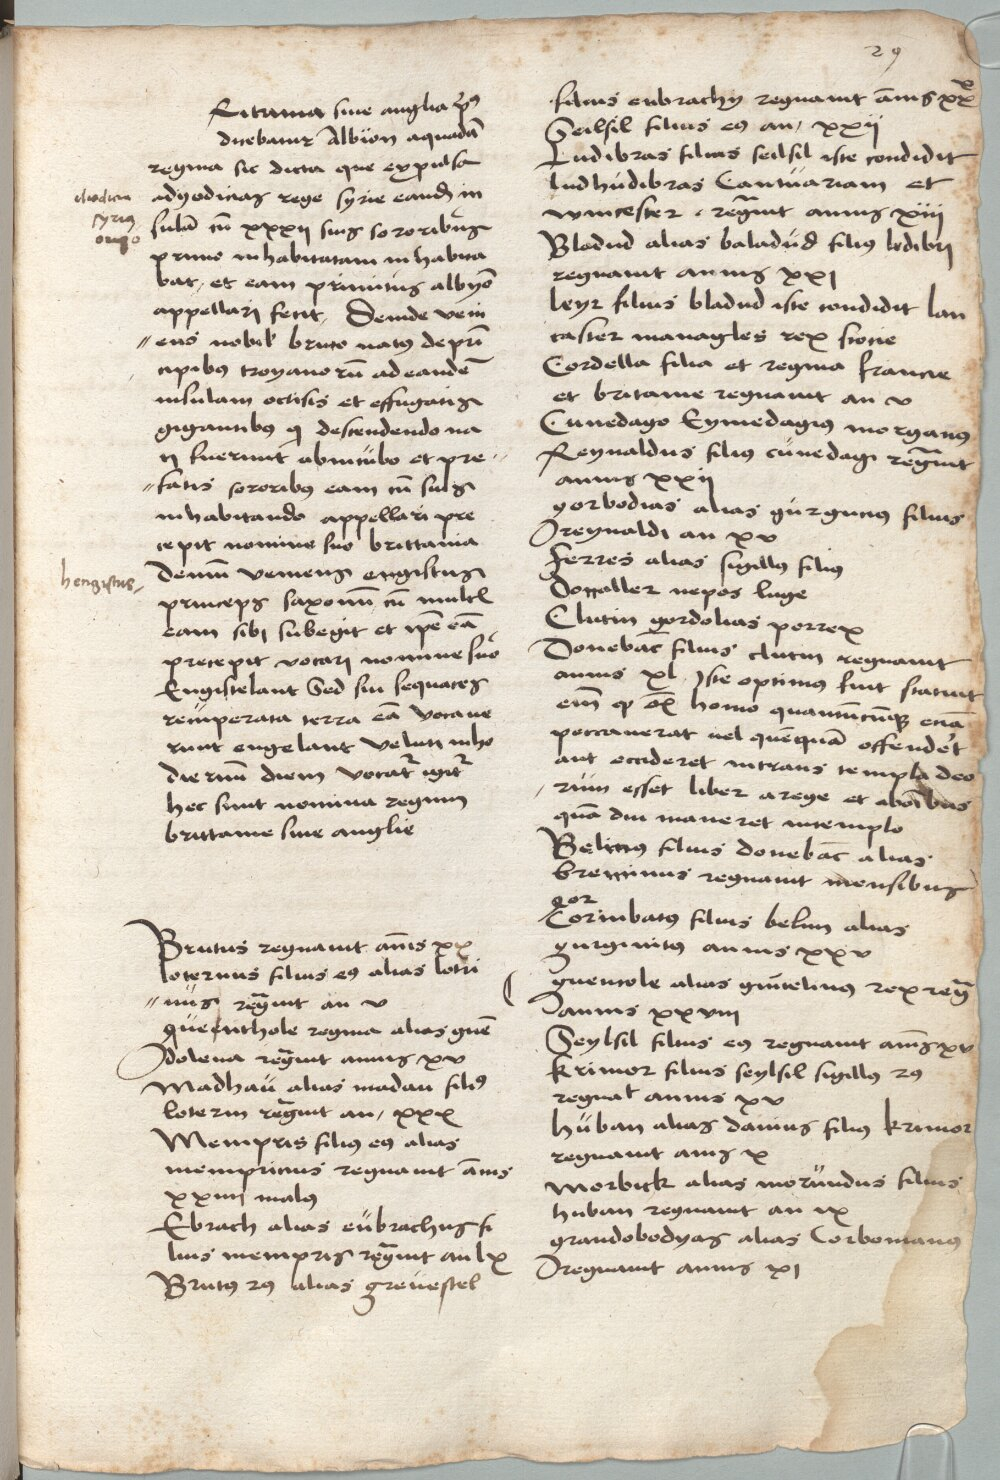 29
Britania siue anglia p̄us
dicebatur Albion a quadā
regina sic dicta que expulsa
a dyodicias rege syrie eandē in
sulā cū xxxii suis sororibus
primo inhabitatam inhabita
bat, et eam primitus albyō
appellari fecit, Deinde veni
ens nobil' bruto natus de prī
cipibus troyanorū ad eandē
insulam occisis et effugatis
gigantibus qͥ descendendo na
ti fuerunt ab incubo et pre
fatis sororibus eam cū suis
inhabitando appellari pre
cepit nomine suo brittania
Demū veniens engistus
princeps saxonū cū mult'
eam sibi subegit et ip̄e eā
precepit vocari nomine suo
Engistelant Sed sui sequaces
reimperata terra eā vocaue
runt engelant veluti in ho
diernū diem vocatr̄ igitr̄
hec sunt nomina regum
brittanie siue anglie
syrus
hengistus
Brutus regnauit annis xx
loternus filius eius alias lotri
nus regnauit an v
Quenthole regina alias guē
dolena regnauit annis xv
Madhau alias madan filius
loterin regnauit an, xxx
Mempris filius eius alias
mempricius regnauit annis
xxiiii malus
Ebrach alias eubrachus fi
lius mempris regnauit an lx
Brutus 2us alias greuestel
filius eubrachy regnauit annis xx
Seilsil filius eius an, xxii
Ludibras filius seilsil iste condidit
ludhudibras Cantuariam et
wincester, regnauit annis xiiii
Bladud alias baladud filius ludibri
regnauit annis xxi
leyr filius bladud iste condidit lan
caster managles rex scocie
Cordella filia et regina francie
et britanie regnauit an v
Cunedago Eymedagius morganus
Reynaldus filius cunedagi regnauit
annis xxii
gorbodias alias gurgucius filius
reynaldi an xv
Ferres alias sigillus filius
Doccaller nepos luge
Clutin gordolias porrex
Donebāt filius clutin regnauit
annis xl, Iste optimus fuit statuit
em̄ qͥ oīs homo quantūcūque etiā
peccauerat uel quēquā offenderet
aut occideret intrans templa deo
rum esset liber a rege et ab oībus
quā diu maneret in templo
Belinus filius donebāt alias
brennnus regnauit mensibus
gor
Corinbatus filius belini alias
gurguitus annis xxv
guentole alias guitelinus rex regnauit
annis xxviii
Seylsil filius eius regnauit annis xv
Krimor filius seylsil sigillus 2us
regnat annis xv
huban alias danius filius krimor
regnauit annis x
Morbick alias morundus filius
huban regnauit an ix
grandobodyas alias Corbonianus
regnauit annis xi